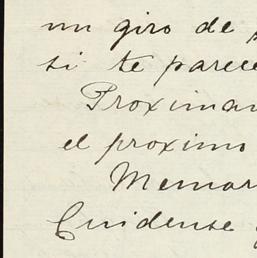 un giro de
si te parece
Proximam
el proximo
Memor
Cuidense